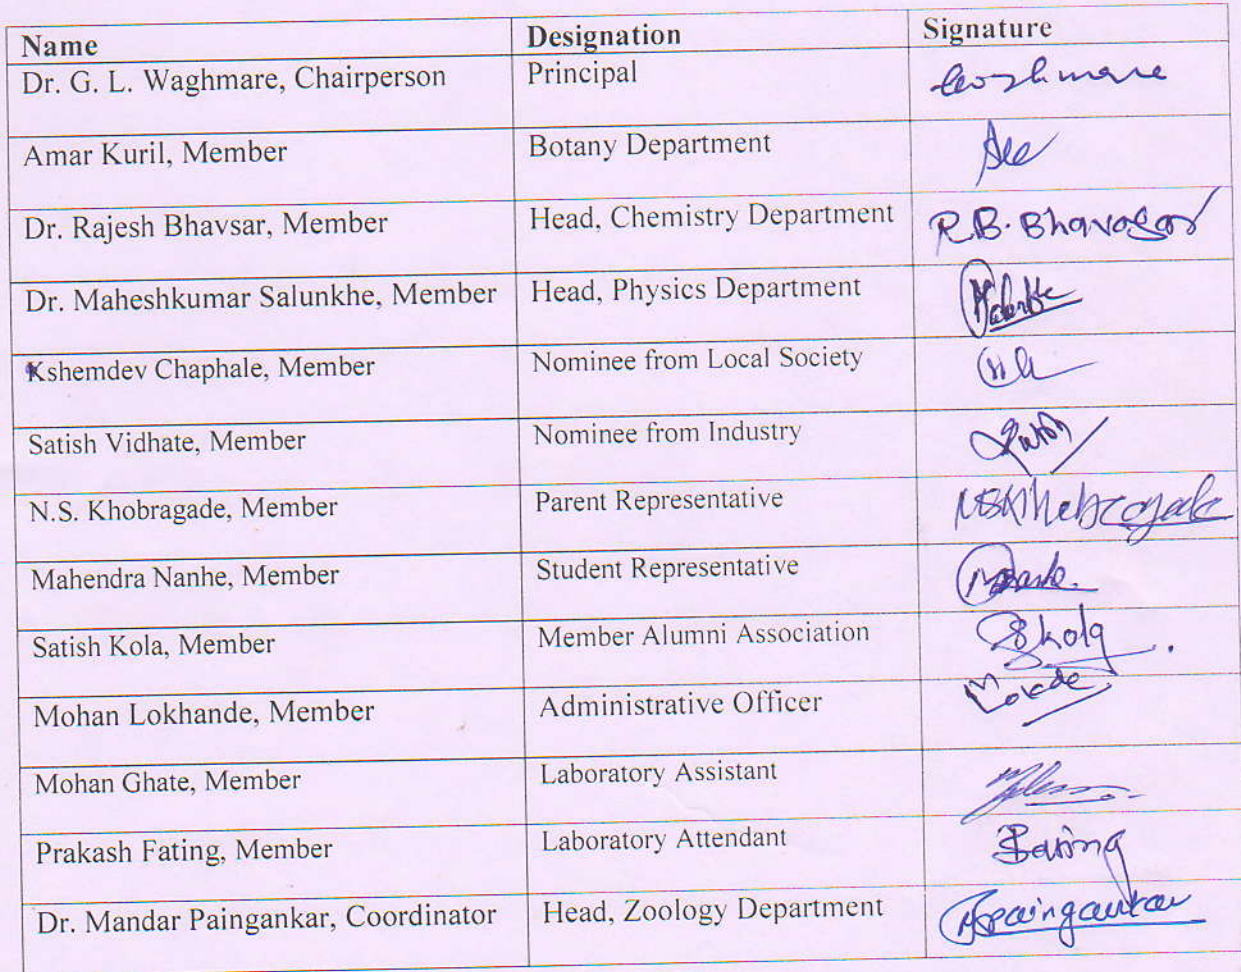 Name Designation Signature
Dr. G. L. Waghmare, Chairperson Principal
Amar Kuril, Member Botany Department
Dr. Rajesh Bhavsar, Member Head, Chemistry Department R.B. Bhavasar
Dr. Maheshkumar Salunkhe, Member Head, Physics Department
Kshemdev Chaphale, Member Nominee from Local Society
Satish Vidhate, Member Nominee from Industry
N.S. Khobragade, Member Parent Representative
Mahendra Nanhe, Member Student Representative
Satish Kola, Member Member Alumni Association Skola
Mohan Lokhande, Member Administrative Officer
Mohan Ghate, Member Laboratory Assistant
Prakash Fating, Member Laboratory Attendant
Dr. Mandar Paingankar, Coordinator Head, Zoology Department Mpaingankar